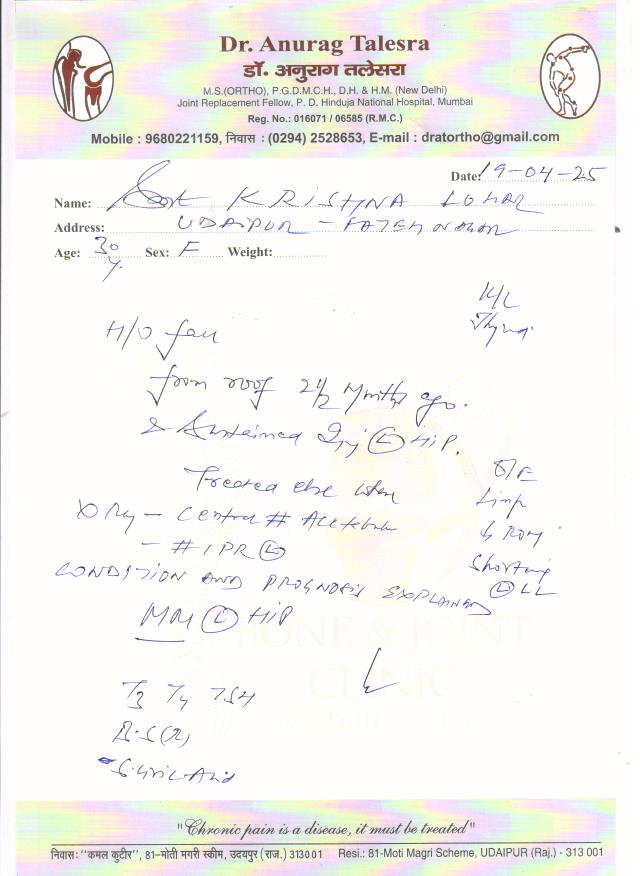 Dr. Anurag Talesra
डॉ. अनुराग तलेसरा
M.S.(ORTHO), P.G.D.M.C.H., D.H. & H.M. (New Delhi)
Joint Replacement Fellow, P. D. Hinduja National Hospital, Mumbai
Reg. No.: 016071 / 06585 (R.M.C.)
Mobile : 9680221159, निवास : (0294) 2528653, E-mail : dratortho@gmail.com
Date: 19-04-25
Name: KRISHNA LOHAR
Address: UDAIPUR - FATEHNAGAR
Age: 30 y. Sex: F Weight:
K/C
H/O fall
from roof 2 1/2 Months ago.
& Sustained Inj (L) HIP.
O/E
Treated else where
Limp
X Ray - Central # Acetabulum
↓ ROM
- # IPR (L)
Shortning
(L) LL
CONDITION AND PROGNOSIS EXPLAINED
MRI (L) HIP
BONE & JOINT
CLINIC
T3 T4 TSH
B.S (R)
S. Uric Acid
"Chronic pain is a disease, it must be treated"
निवास: "कमल कुटीर", 81-मोती मगरी स्कीम, उदयपुर (राज.) 313001 Resi.: 81-Moti Magri Scheme, UDAIPUR (Raj.) - 313 001